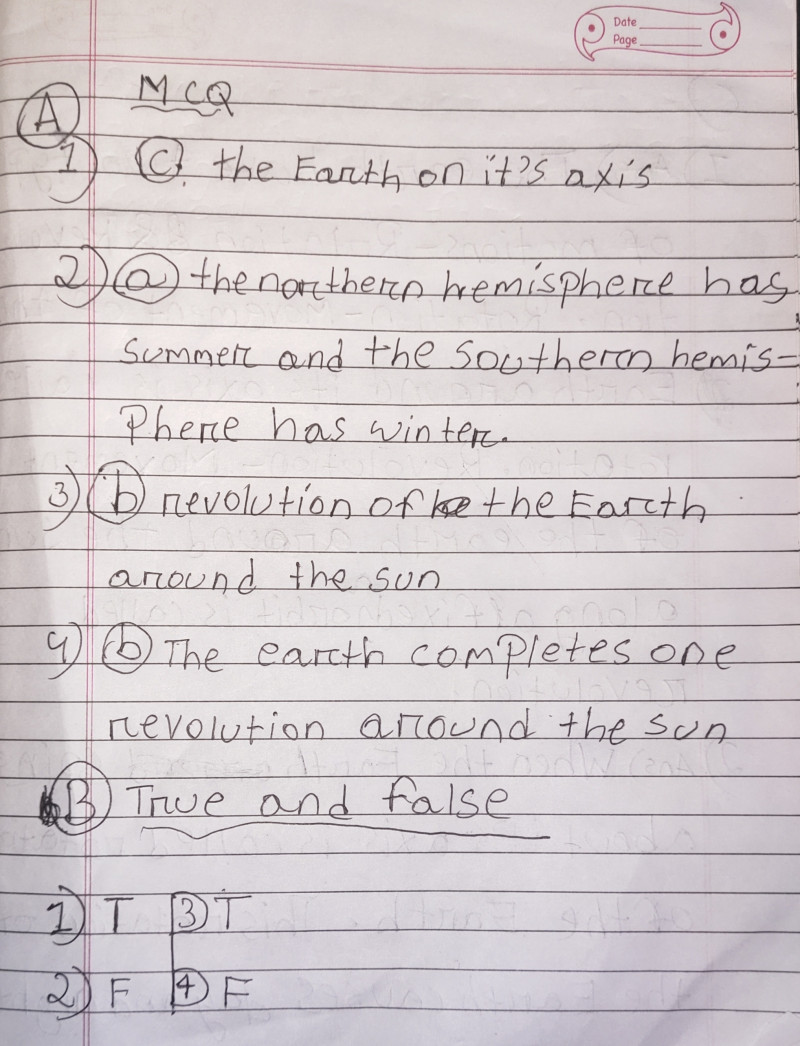 Date
Page
MCQ
A
1) c. the Earth on it's axis
2) a the northern hemisphere has
summer and the southern hemis-
phere has winter.
3) b revolution of the Earth
around the sun
4) b The earth completes one
revolution around the sun
B True and false
1) T 3) T
2) F 4) F